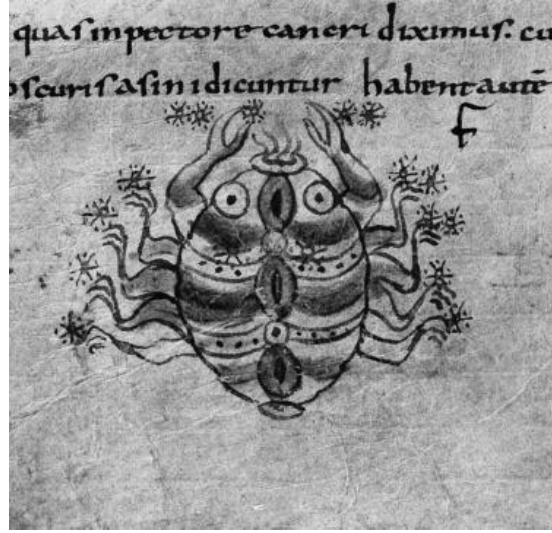 quas in pectore cancri diximus. cu
oscuris asini dicuntur habent autē
F